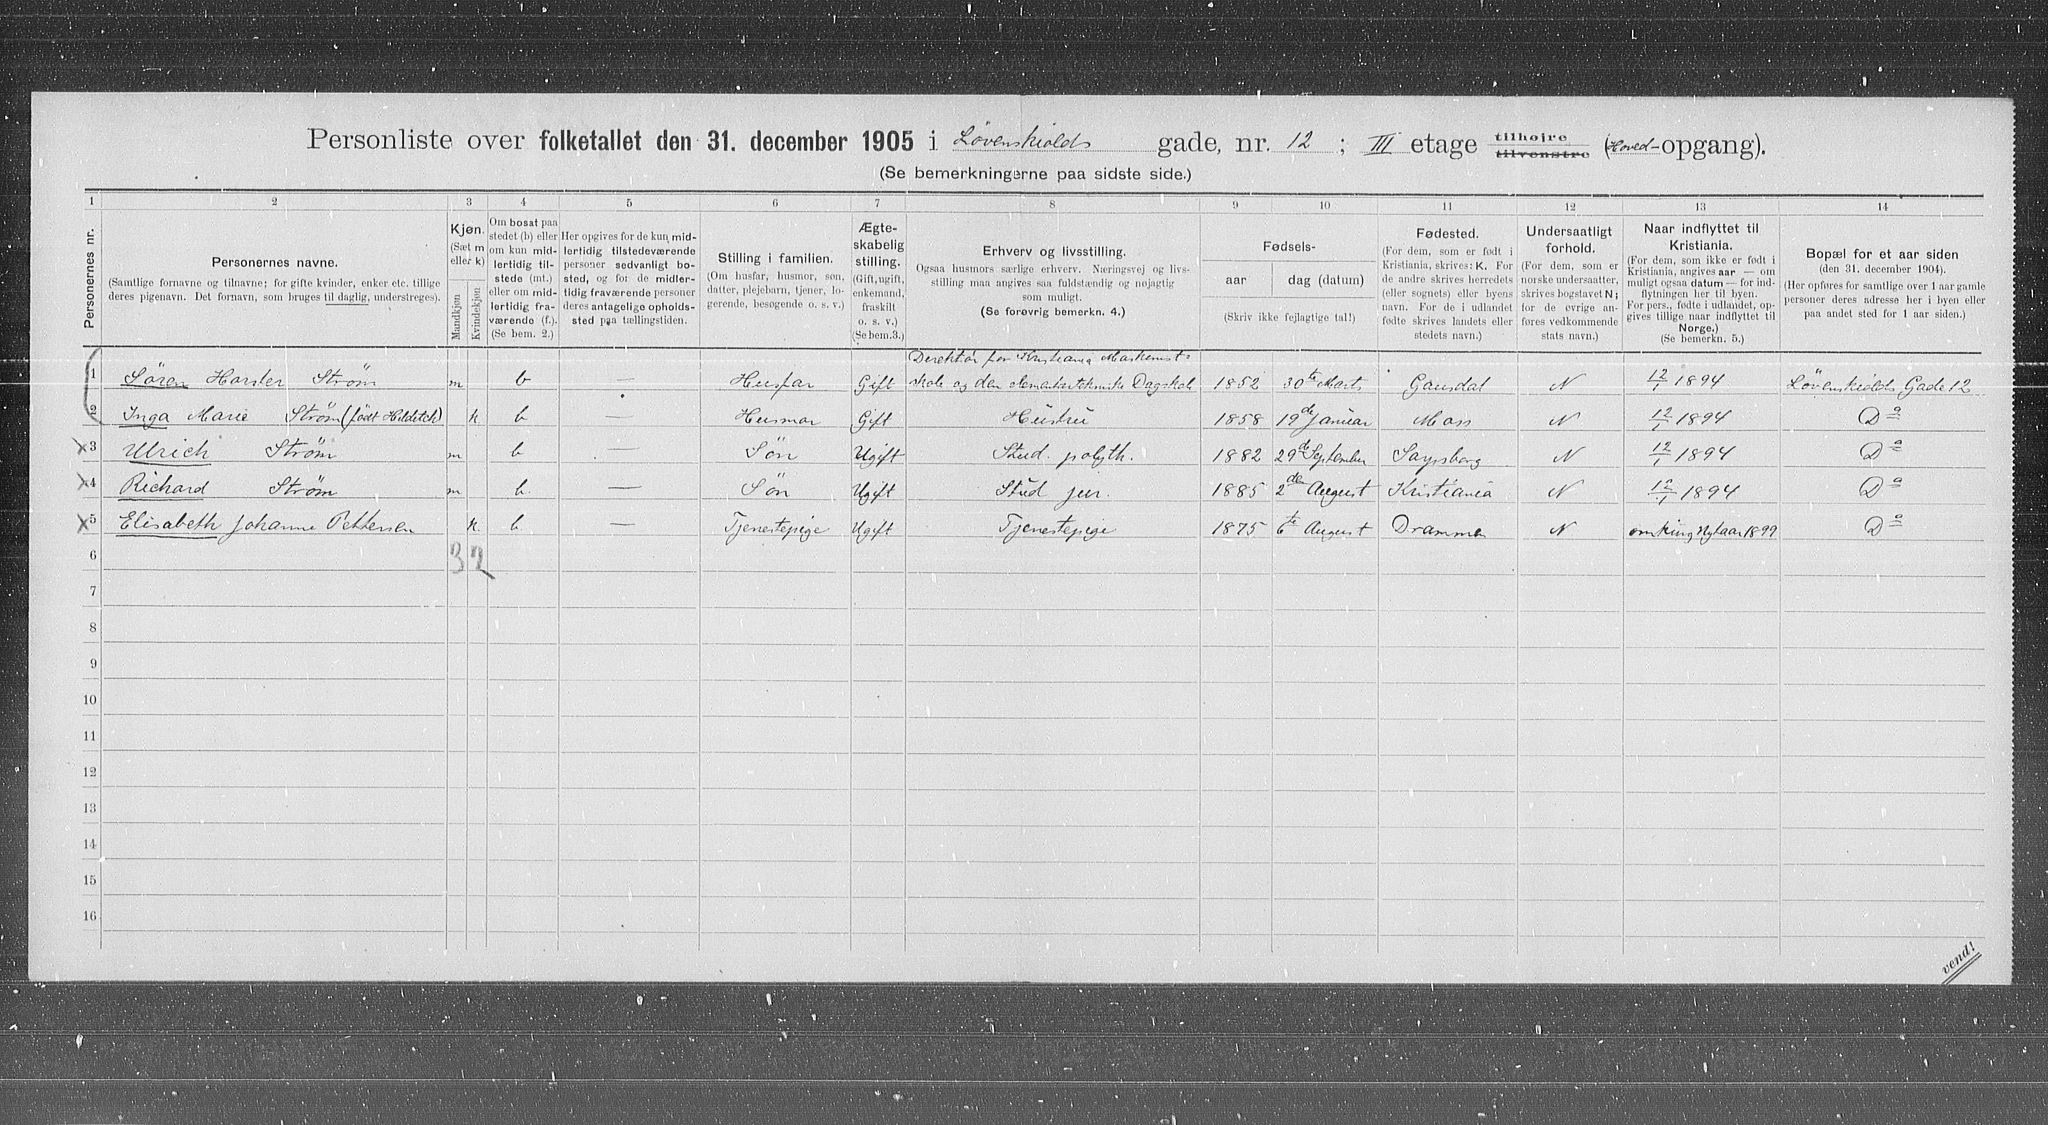 Personliste over folketallet den 31. december 1905 i Løvenskiolds gade, nr. 12 ; III etage tilhøjre tilvenstre (Hoved-opgang).
(Se bemerkningerne paa sidste side.)
1 2 3 4 5 6 7 8 9 10 11 12 13 14
Personernes nr.
Personernes navne.
(Samtlige fornavne og tilnavne; for gifte kvinder, enker etc. tillige
deres pigenavn. Det fornavn, som bruges til daglig, understreges).
Kjøn.
(Sæt m
eller k)
Mandkjøn
Kvindekjøn
Om bosat paa
stedet (b) eller
om kun mid-
lertidig til-
stede (mt.)
eller om mid-
lertidig fra-
værende (f.).
(Se bem. 2.)
Her opgives for de kun mid-
lertidig tilstedeværende
personer sedvanligt bo-
sted, og for de midler-
tidig fraværende personer
deres antagelige opholds-
sted paa tællingstiden.
Stilling i familien.
(Om husfar, husmor, søn,
datter, plejebarn, tjener, lo-
gerende, besøgende o. s. v.)
Ægte-
skabelig
stilling.
(Gift, ugift,
enkemand,
fraskilt
o. s. v.)
(Se bem. 3.)
Erhverv og livsstilling.
Ogsaa husmors særlige erhverv. Næringsvej og livs-
stilling maa angives saa fuldstændig og nøjagtig
som muligt.
(Se forøvrig bemerkn. 4.)
Fødsels-
aar dag (datum)
(Skriv ikke fejlagtige tal!)
Fødested.
(For dem, som er født i
Kristiania, skrives: K. For
de andre skrives herredets
(eller sognets) eller byens
navn. For de i udlandet
fødte skrives landets eller
stedets navn.)
Undersaatligt
forhold.
(For dem, som er
norske undersaatter,
skrives bogstavet N;
for de øvrige an-
føres vedkommende
stats navn.)
Naar indflyttet til
Kristiania.
(For dem, som ikke er født i
Kristiania, angives aar — om
muligt ogsaa datum — for ind-
flytningen her til byen.
For pers., fødte i udlandet, op-
gives tillige naar indflyttet til
Norge.)
(Se bemerkn. 5.)
Bopæl for et aar siden
(den 31. december 1904).
(Her opføres for samtlige over 1 aar gamle
personer deres adresse her i byen eller
paa andet sted for 1 aar siden.)
Direktør for Kristiania Maskinist-
1 Søren Strøm m b — Husfar Gift skole og den elementærtekniske Dagskole 1852 30te Marts Gausdal N 12/1 1894 Løvenskiolds Gade 12
2 Inga Marie Strøm (født Hilditch) k b — Husmor Gift Hustru 1858 19de Januar Moss N 12/1 1894 Do
3 Ulrich Strøm m b — Søn Ugift Stud. polyth. 1882 29de September Sarpsborg N 12/1 1894 Do
4 Richard Strøm m b. — Søn Ugift Stud jur. 1885 2de August Kristiania N 12/1 1894 Do
5 Elisabeth Johanne Pettersen k. b. — Tjenestepige Ugift Tjenestepige 1875 6te August Drammen N omkring Nytaar 1899 Do
6 3 2
7
8
9
10
11
12
13
14
15
16
vend!